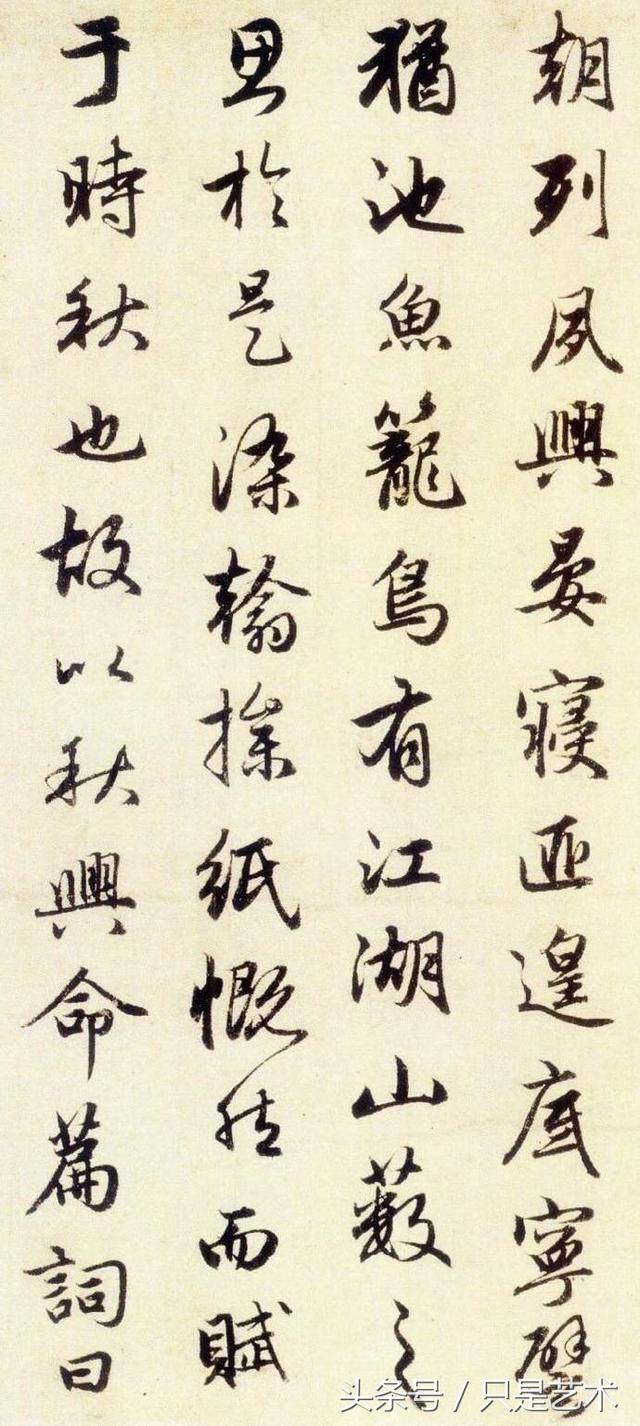 朝列夙興晏寢匪遑底寧譬
猶池魚籠鳥有江湖山薮之
思於是染翰操紙慨然而賦
于時秋也故以秋興命篇詞曰
头条号 / 只是艺术